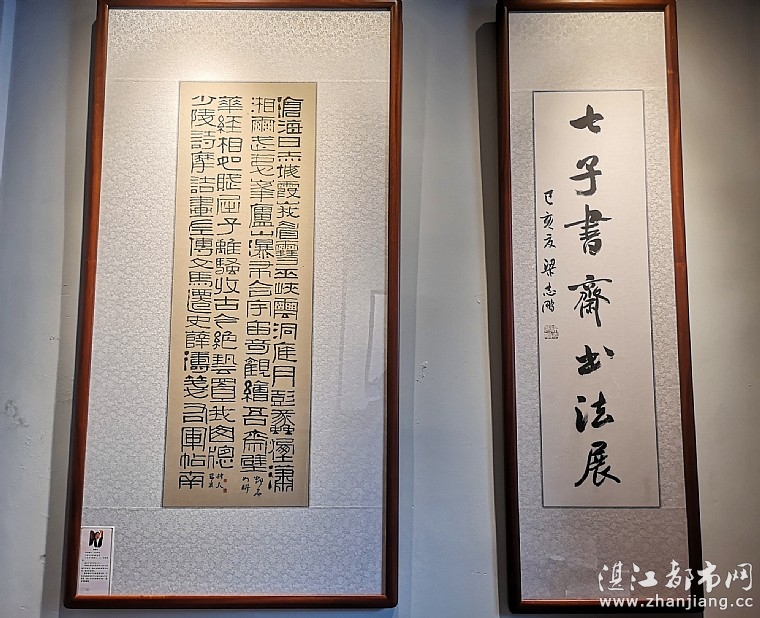 滄海日赤城霞峩眉雪巫峽雲洞庭月彭蠡煙瀟
湘雨武夷峯廬山瀑布合宇宙奇觀繪吾齋壁
少陵詩摩詰畫左傳文馬遷史薛濤箋右軍帖南
華經相如賦屈子離騷收古今絕藝置我山窗
七子書齋书法展
己亥夏梁志鹏
湛江都市网
www.zhanjiang.cc